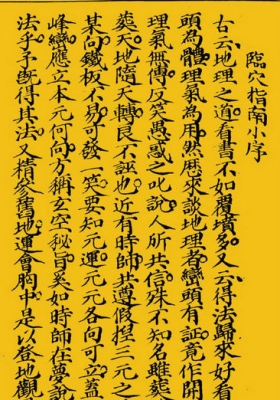 臨穴指南小序
古云地理之道看書不如覆墳多又云得法歸來好看
頭為體理氣為用然歷來談地理者巒頭有証竟作開
理氣無傳反笑愚惑之叱說人所共信殊不知名雖葬
葬天地隨天轉良不誣也近有時師共遵假揑三元之
某向鐵板不易可發一笑要知元運元元各向可立蓋
峰巒應立本元何向方稱玄空秘旨奚如時師在夢說
法乎予既得其法又精參舊地運會胸中是以登地觀